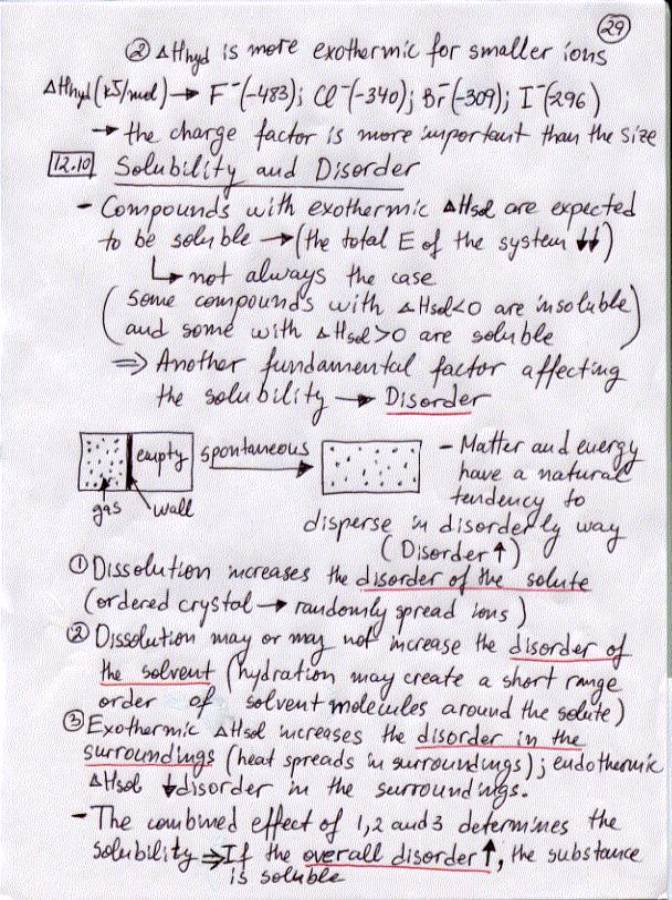 29
② ΔHhyd is more exothermic for smaller ions
ΔHhyd (kJ/mol) → F⁻(-483); Cl⁻(-340); Br⁻(-309); I⁻(-296)
→ the charge factor is more important than the size
12.10 Solubility and Disorder
- Compounds with exothermic ΔHsol are expected
to be soluble → (the total E of the system ↓↓)
↳ not always the case
(some compounds with ΔHsol<0 are insoluble
and some with ΔHsol>0 are soluble)
⇒ Another fundamental factor affecting
the solubility → Disorder
empty spontaneous
gas wall
- Matter and energy
have a natural
tendency to
disperse in disorderly way
(Disorder ↑)
① Dissolution increases the disorder of the solute
(ordered crystal → randomly spread ions)
② Dissolution may or may not increase the disorder of
the solvent (hydration may create a short range
order of solvent molecules around the solute)
③ Exothermic ΔHsol increases the disorder in the
surroundings (heat spreads in surroundings); endothermic
ΔHsol ↓ disorder in the surroundings.
- The combined effect of 1, 2 and 3 determines the
solubility ⇒ If the overall disorder ↑, the substance
is soluble